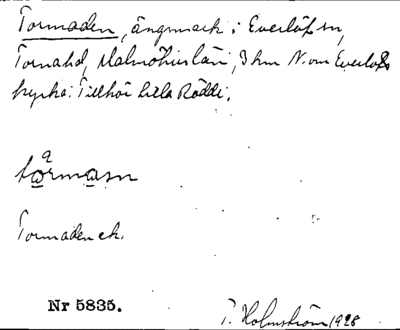 Tormaden, ängsmark i Everlöf sn,
Tornahd, Malmöhus län, 3 km N. om Everlöfs
kyrka. Tillhör Lilla Rödde.
Tormaden ek.
Nr 5835.
T. Holmström 1928